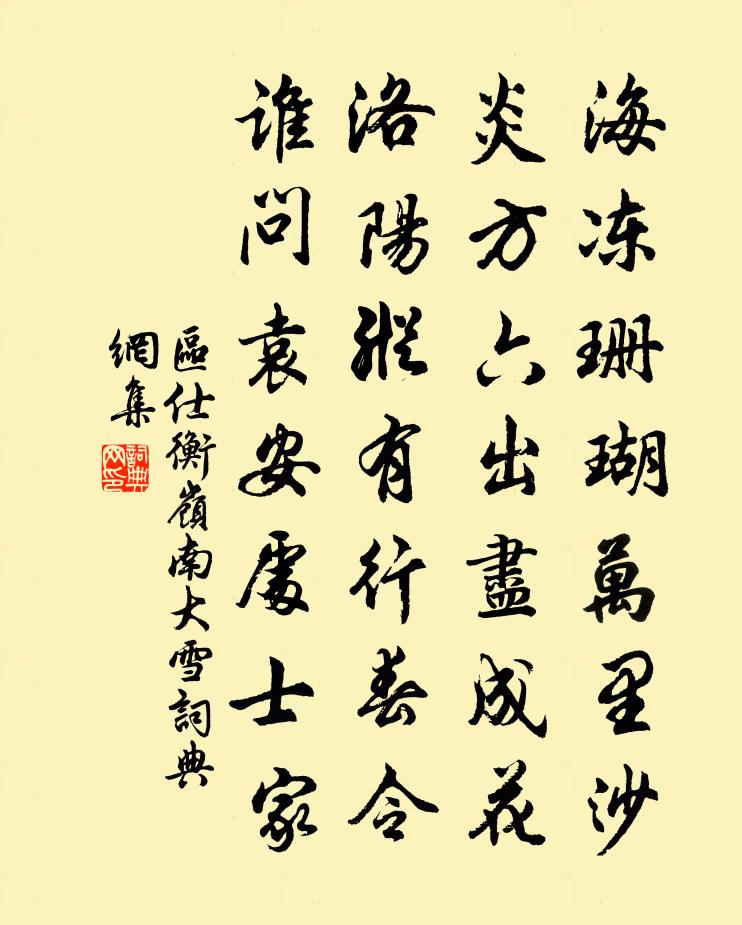 海冻珊瑚萬里沙
炎方六出盡成花
洛陽縱有行春令
誰問袁安處士家
區仕衡嶺南大雪詞典
網集
詞典网印